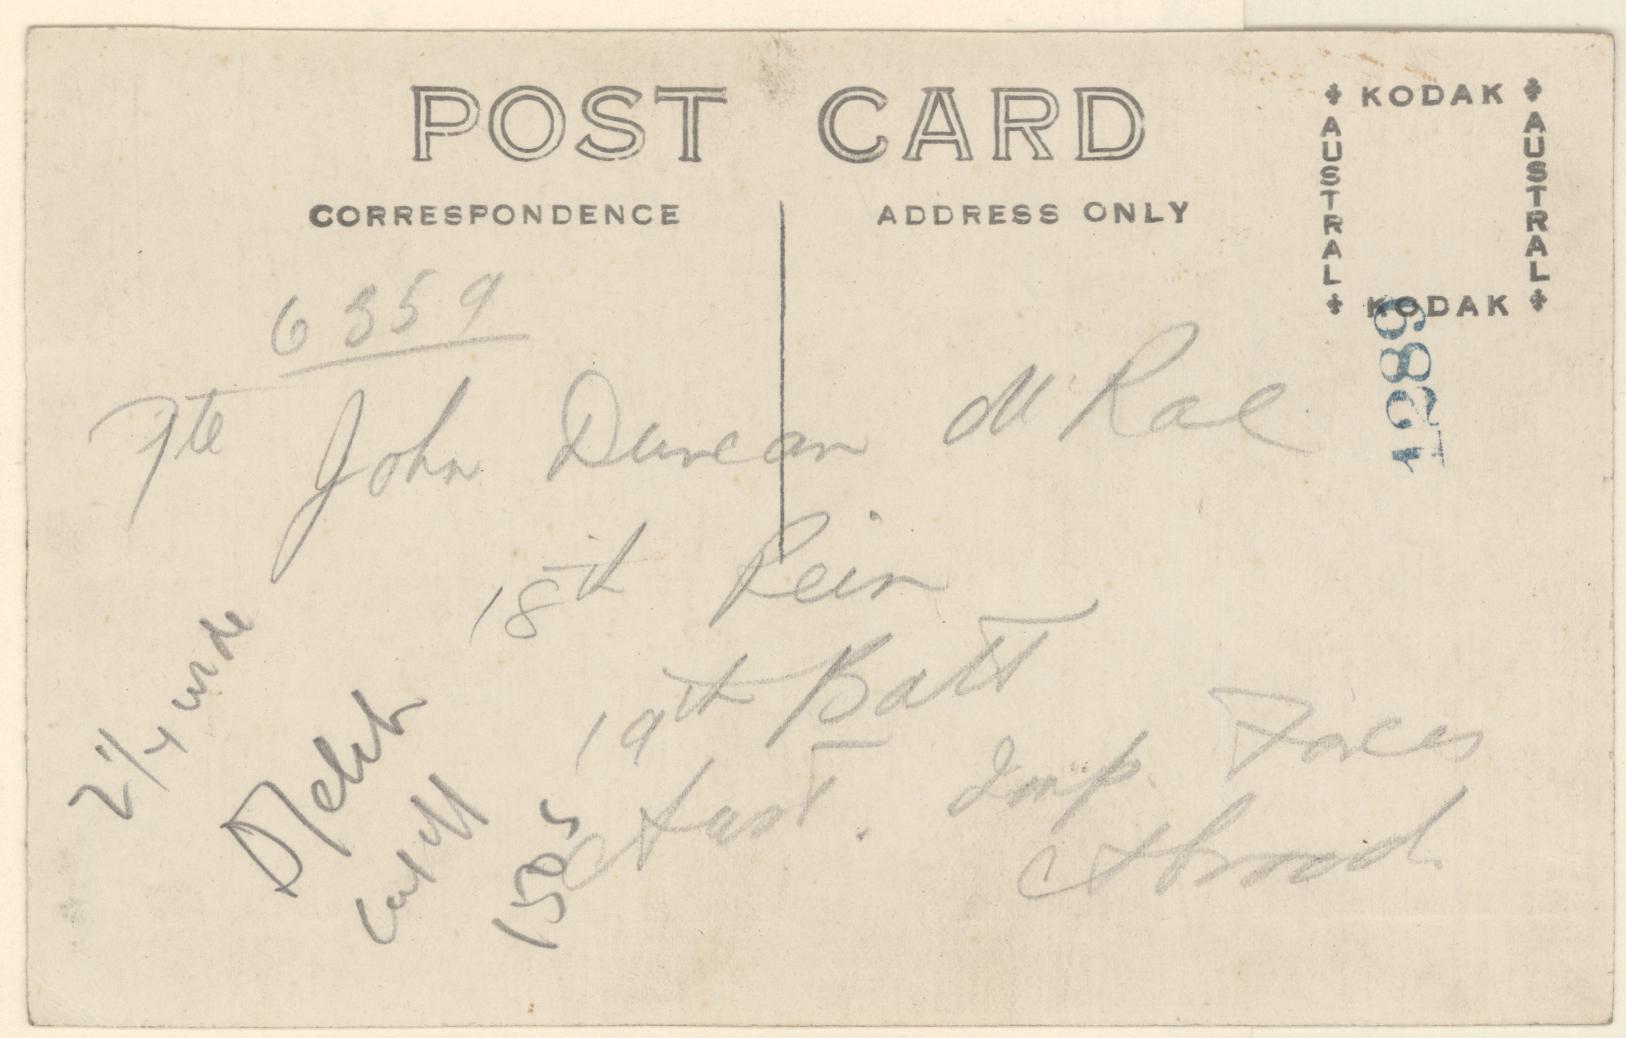 POST CARD
CORRESPONDENCE
ADDRESS ONLY
KODAK
AUSTRAL
AUSTRAL
KODAK
1289
6359
Pte John Duncan McRae
18th Rein
19th Batt
Aust. Imp. Forces
Abroad
2 1/4 wide
1505